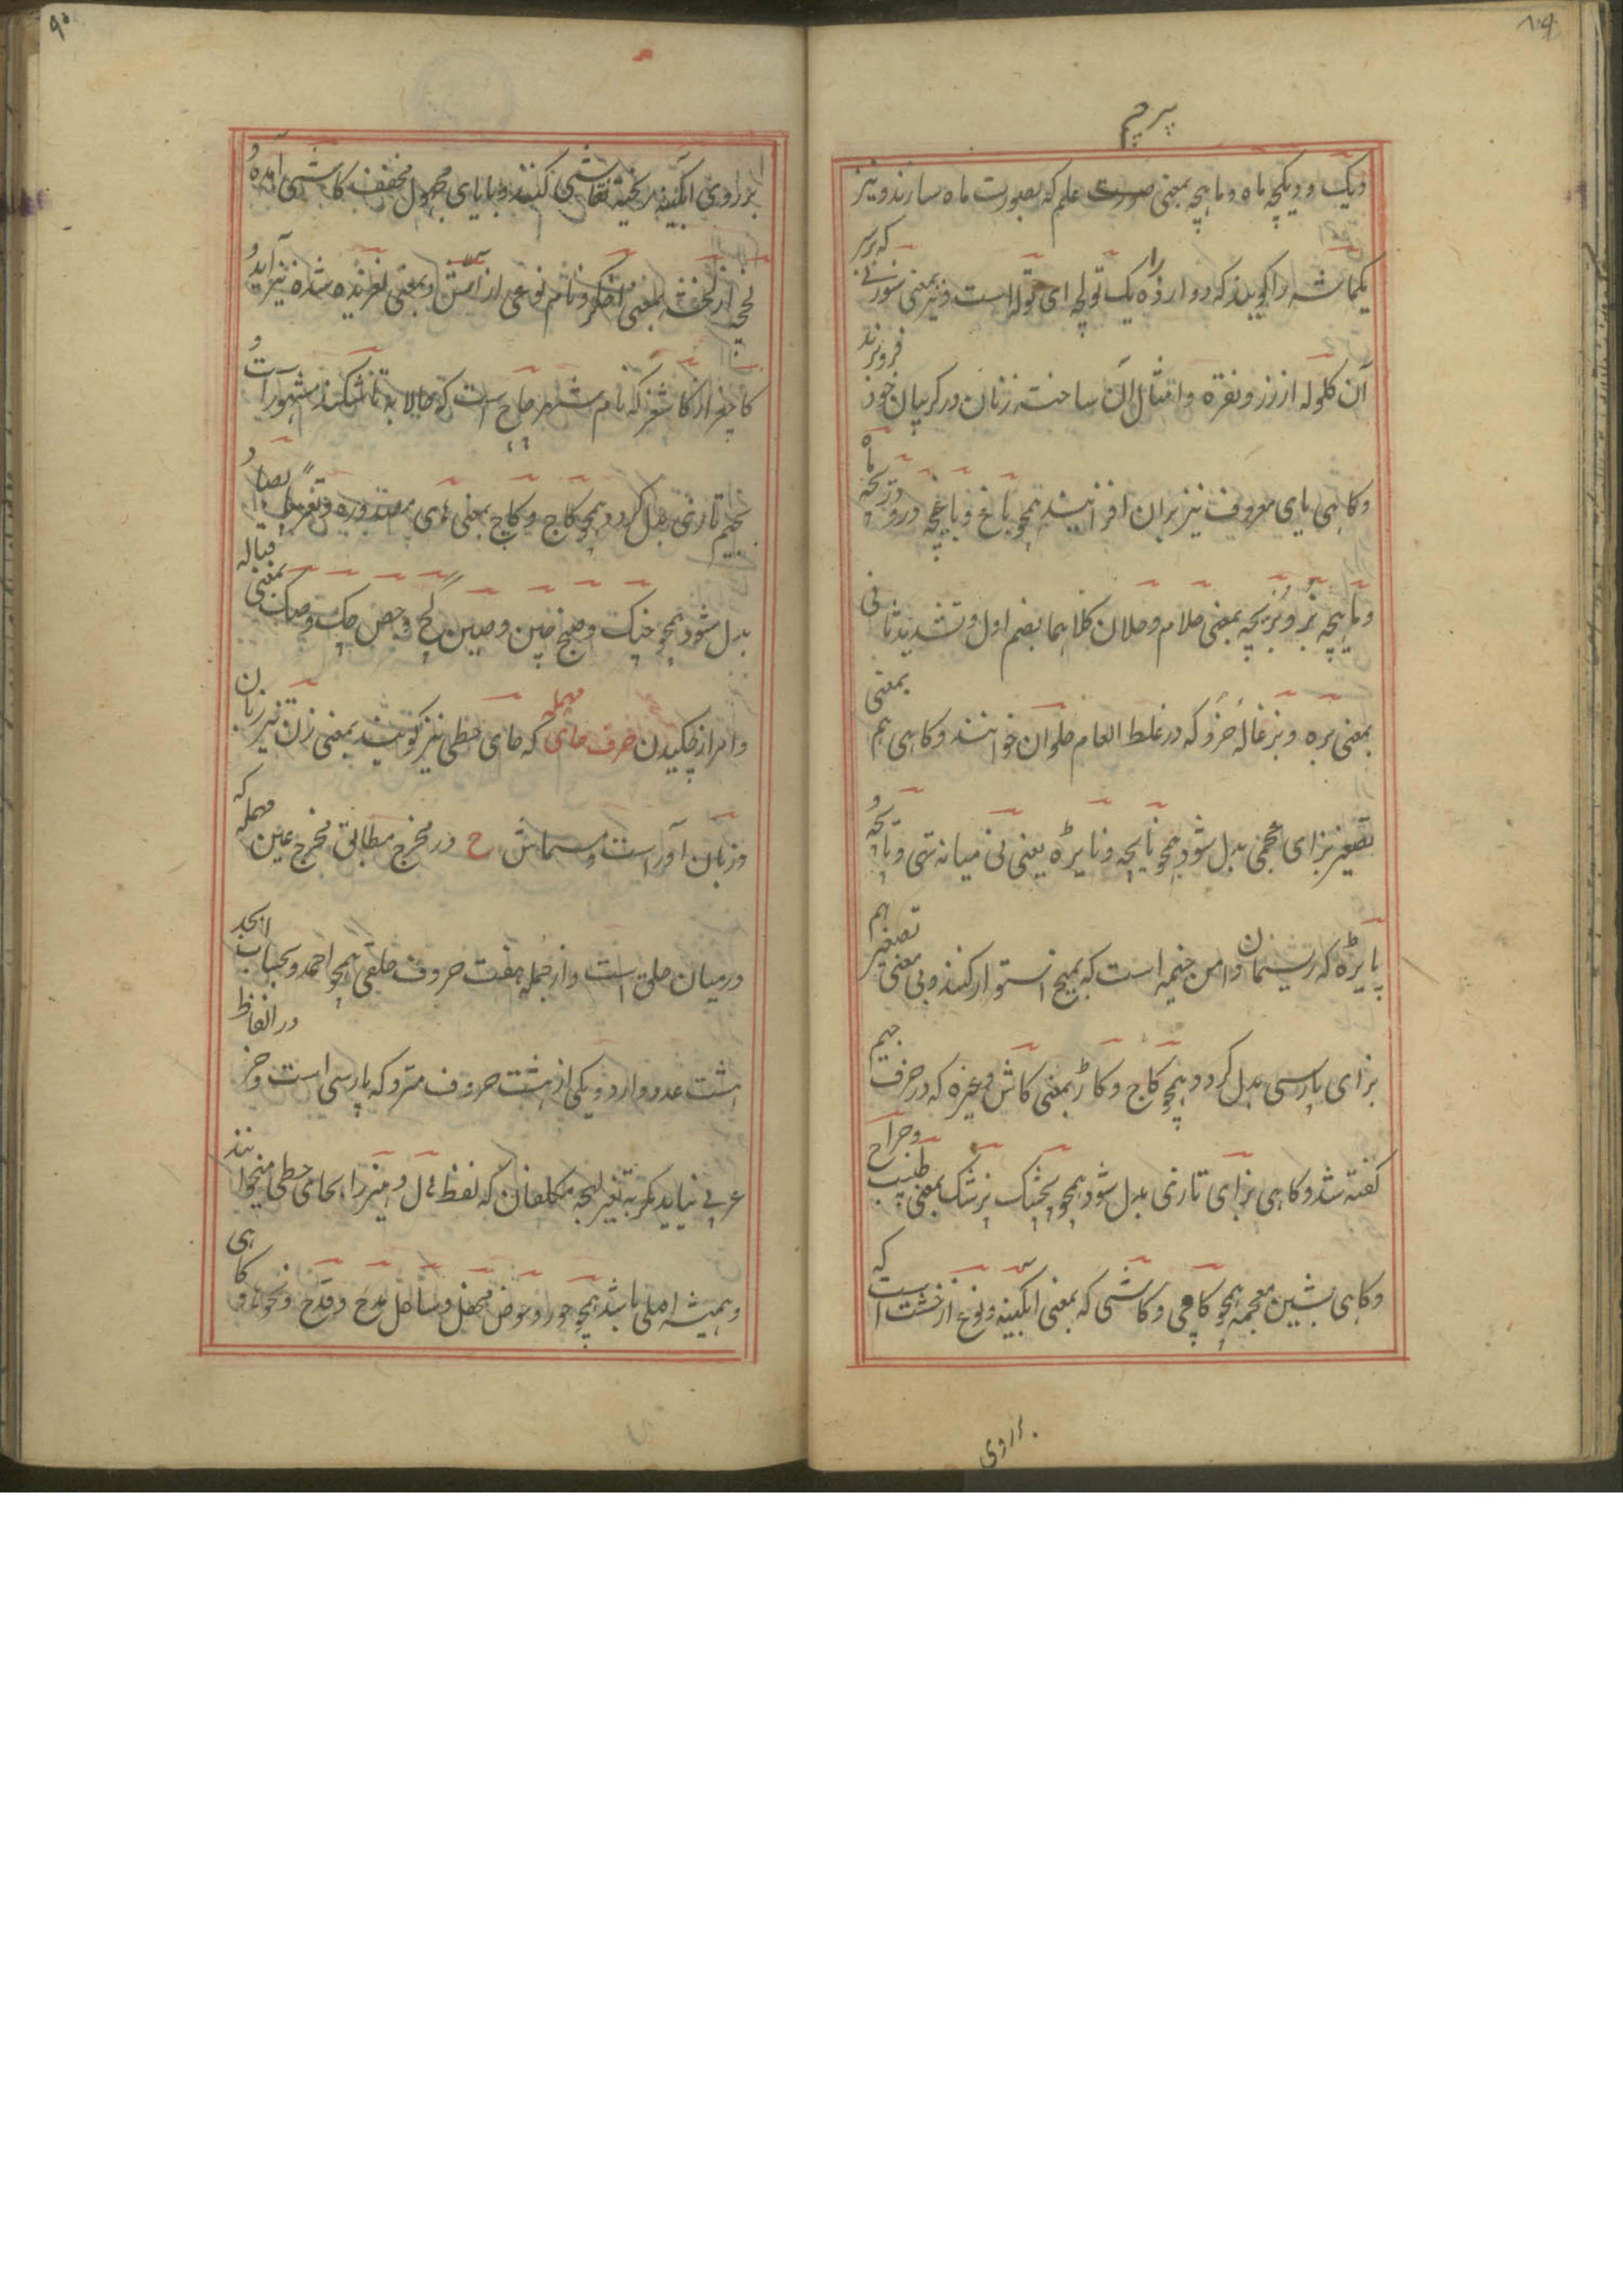 ۸۹
پرچم
دیک و دیکچه ماه و ماهچه بمعنی صورت علم که بصورت ماه سازند و نیز
یکماشه را گویند که دوازده یک تولچه ای توله است و نیز بمعنی سوزنی که بر سر
آن کلوله از زر و نقره و امثال آن ساخته زنان در کریبان خود فروبرند
و کاهی یای معروف نیز بران افزایند همچو باغ و باغچه و در و دریچه ماه
و ماهیچه بز و بزیچه بمعنی حلام و حلان کلاهما بضم اول و تشدید ثانی
بمعنی بره و بزغاله خرد که در غلط العام حلوان خوانند و کاهی بمعنی هم
تصغیر بزای عجمی بدل شود همچو نایچه و نایژه یعنی نی میانه تهی و پایچه و
پایژه که ریسمان دامن خیمه است که بمیخ استوار کنند و بی معنی تصغیر هم
بزای پارسی بدل کردد همچو کاج و کاژ بمعنی کاش و غیره که در حرف جیم
کفته شد و کاهی بزای تازی بدل شود همچو بچشک پزشک بمعنی طبیب و جراح
و کاهی بشین معجمه همچو کاچی و کاشی که بمعنی ابکینه و نوع از خشت است که
بر روی
۹۰
بر روی ابکینه ریخته نقاشی کنند و بایای مجهول مخفف کاشی آمده و
لخچه از لخشه بمعنی اخکر و نام نوعی از آش و بمعنی لغزنده شده نیز آید و
کاچغر از کاشغر که نام شهر چاچ است که حالا به تاشکند مشهور است و
بجیم تازی بدل کردد همچو کاج و کاچ بمعنی های مصدوره و تعریبا بصاد
بدل شود همچو چنک و صنج چین و صین کچ و جص چک و صک بمعنی قباله
و امر از چکیدن حرف حای مهمله که حای حطی نیز کویند بمعنی زن تیز زبان
و زبان آور است و مسمایش ح در مخرج مطابق مخرج عین مهمله که
در میان حلق است و از جمله هفت حروف حلقی همچو احمد و بحساب ابجد
هشت عدد دارد و یکی از هشت حروف متروکه پارسی است و جز در الفاظ
عربی نیاید مکر به تغیر لهجه مکلفان که لفظ هال و هیز را بحای حطی میخوانند
و همیشه اصلی باشد همچو حور و حوض محفل و ساحل مدح و قدح و نحوها و کاهی